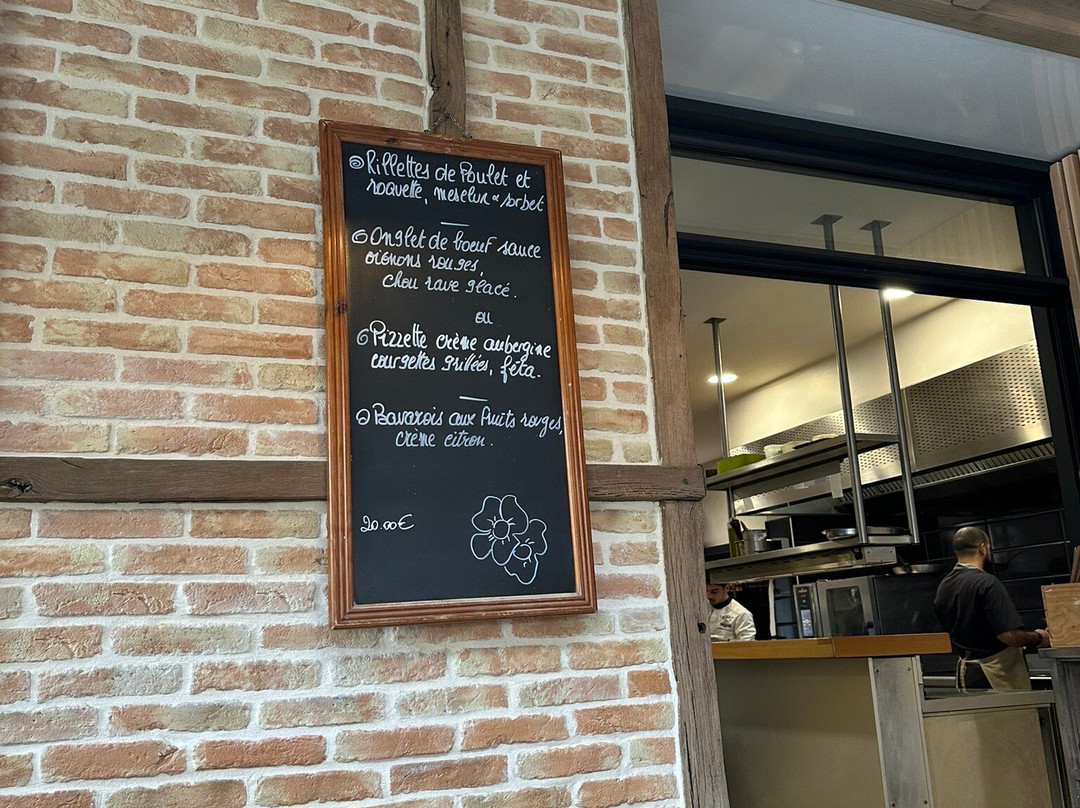 Rillettes de Poulet et
roquette, mesclun & sorbet
Onglet de boeuf sauce
oignons rouges,
chou rave glacé.
ou
Pizzette crème aubergine
courgettes grillées, féta.
Bavarois aux fruits rouges,
crème citron.
20.00€